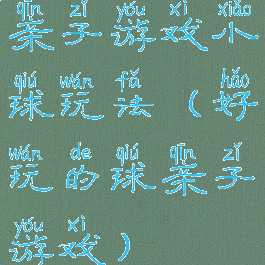 qīn zǐ yóu xì xiǎo
亲子游戏小
qiú wán fǎ hǎo
球玩法(好
wán de qiú qīn zǐ
玩的球亲子
yóu xì
游戏)